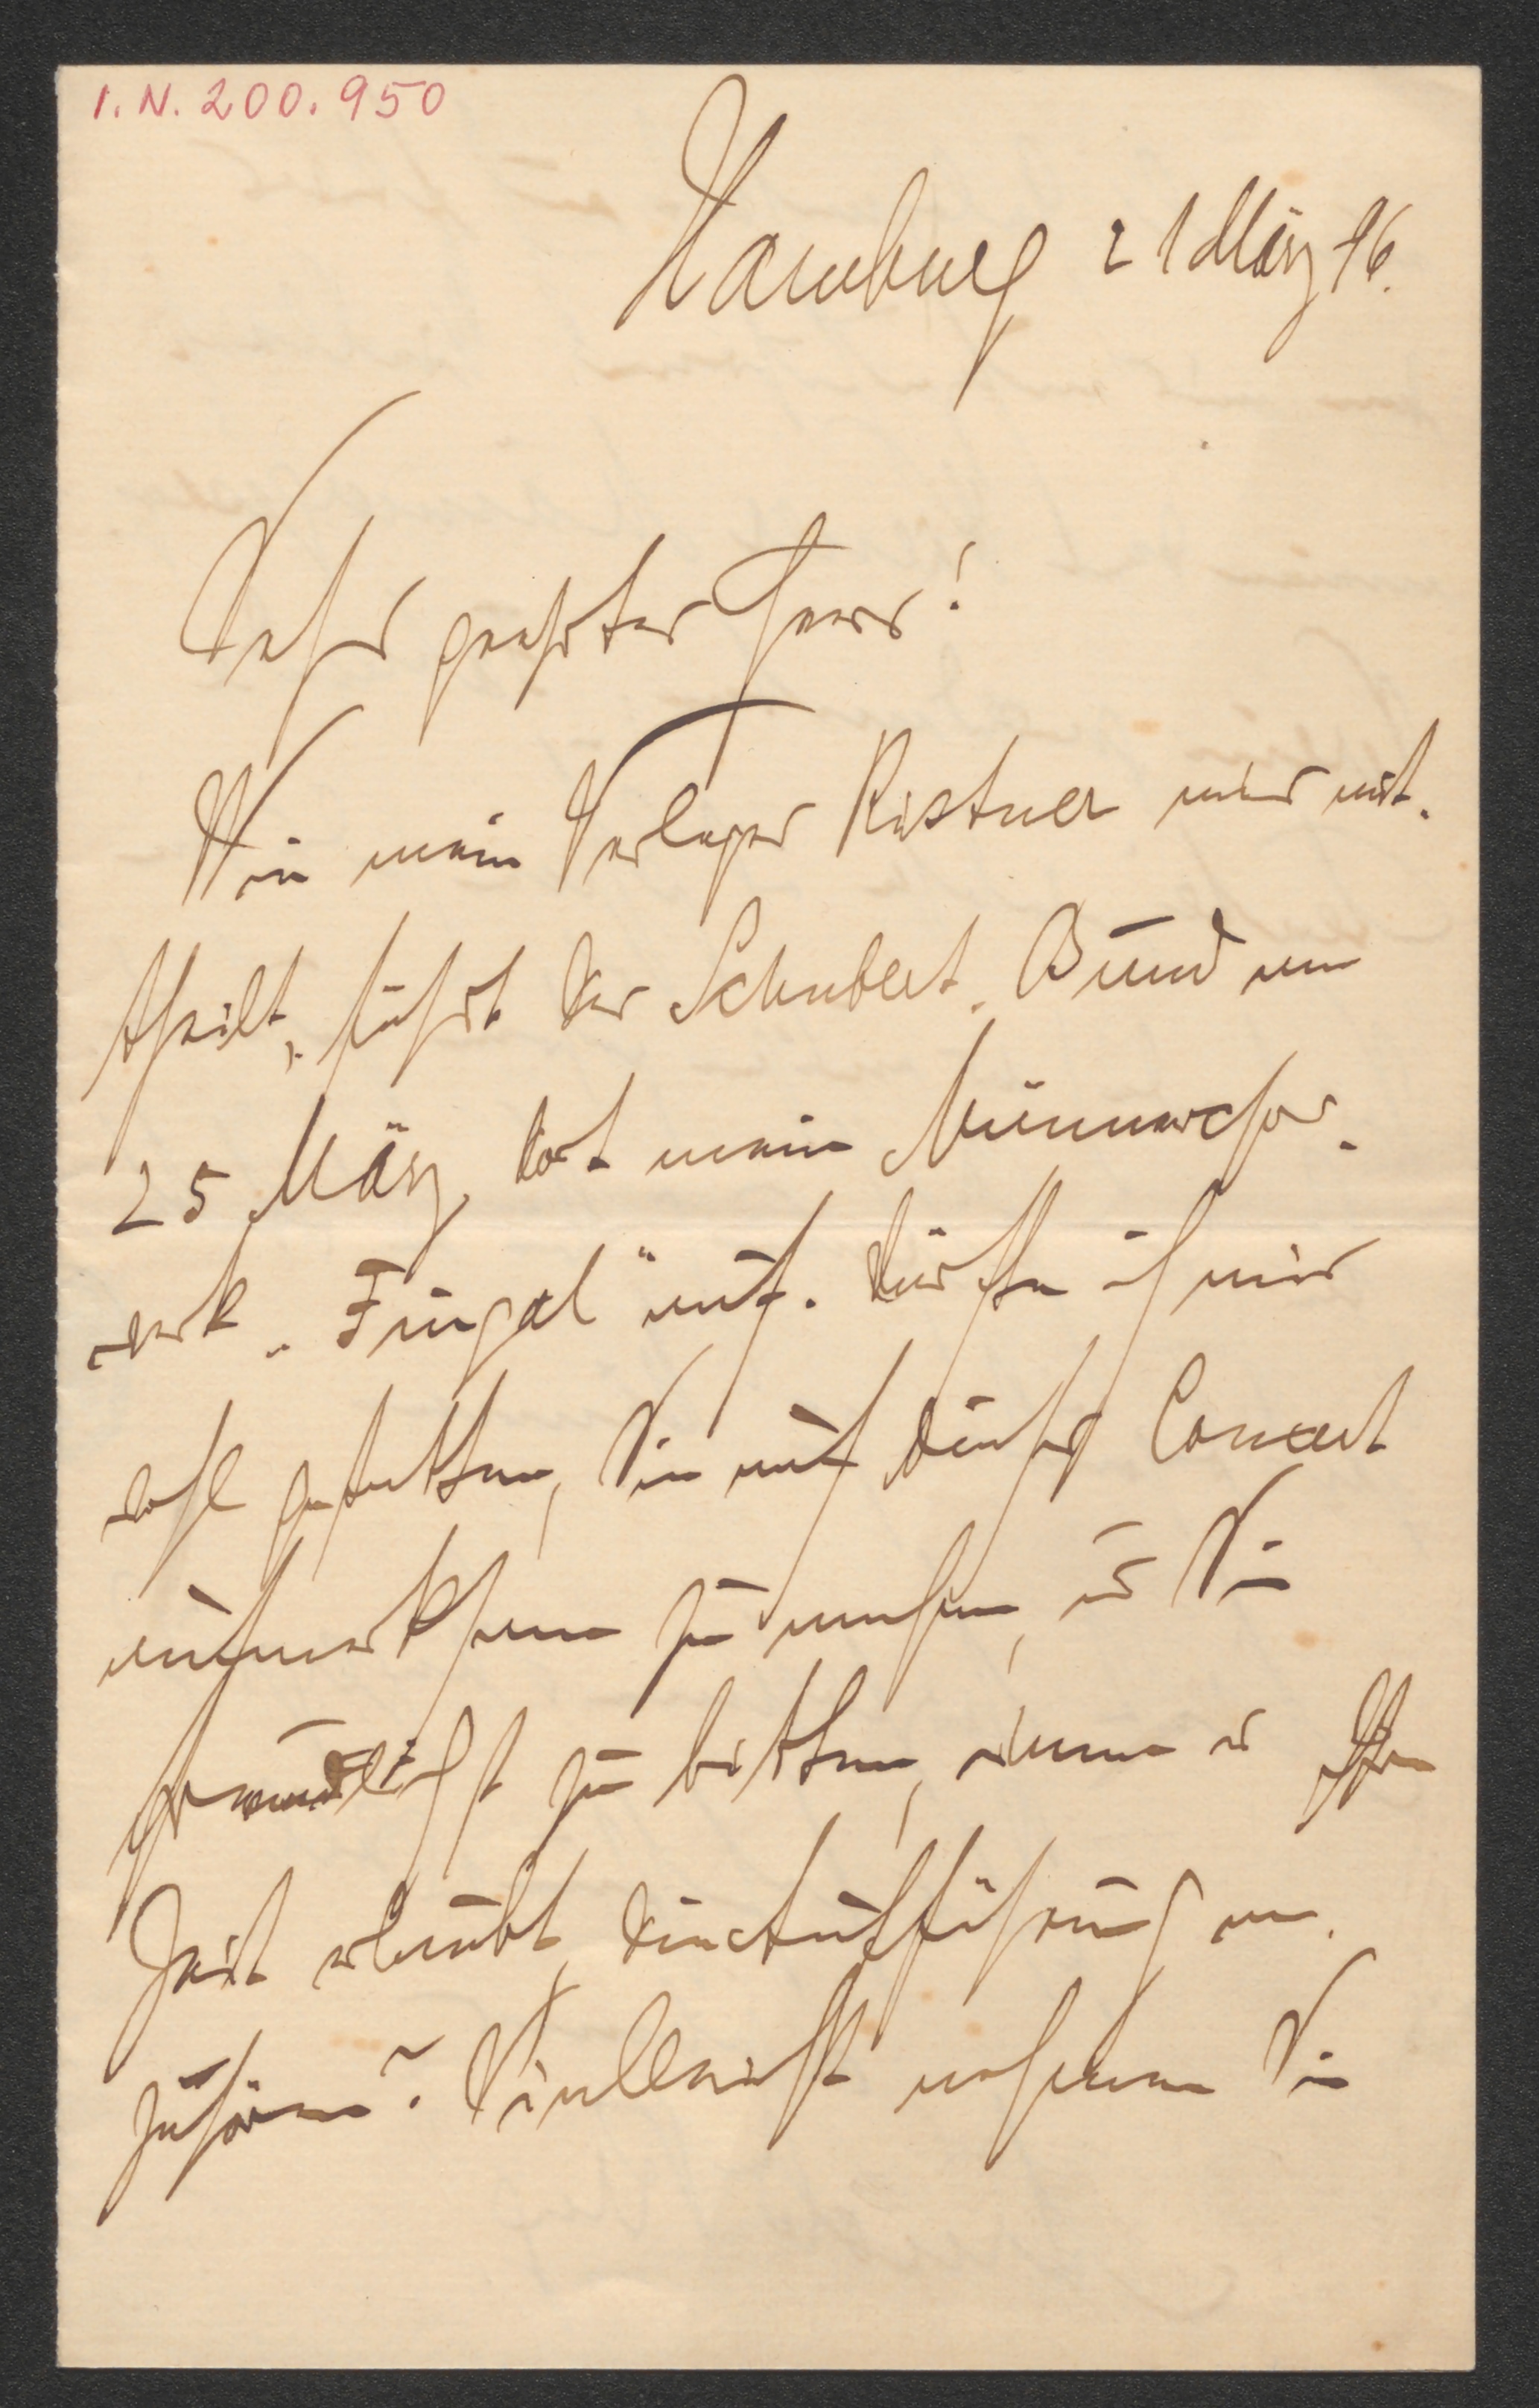 I. N. 200.950
Hamburg 21 März 96.
Sehr geehrter Herr!
Wie mein Verleger Kistner mir mit-
theilt, führt der Schubert-Bund am
25 März dort mein Männerchor-
werk „Fingal" auf. Dürfte ich mir
wohl gestatten, Sie auf dieses Concert
aufmerksam zu machen, u Sie
freundlichst zu bitten, wenn es Ihre
Zeit erlaubt, die Aufführung an-
zuhören? Vielleicht nehmen Sie